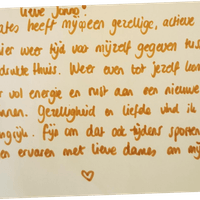 lieve Jano!
ates heeft mij een gezellige, actieve
ier weer tijd voor mijzelf gegeven tus
drukte thuis. Weer even tot jezelf kom
r vol energie en rust aan een nieuwe
nnen. Gezelligheid en liefde vind ik
ngrijk. Fijn om dat ook tijdens sporten
en ervaren met lieve dames om mij